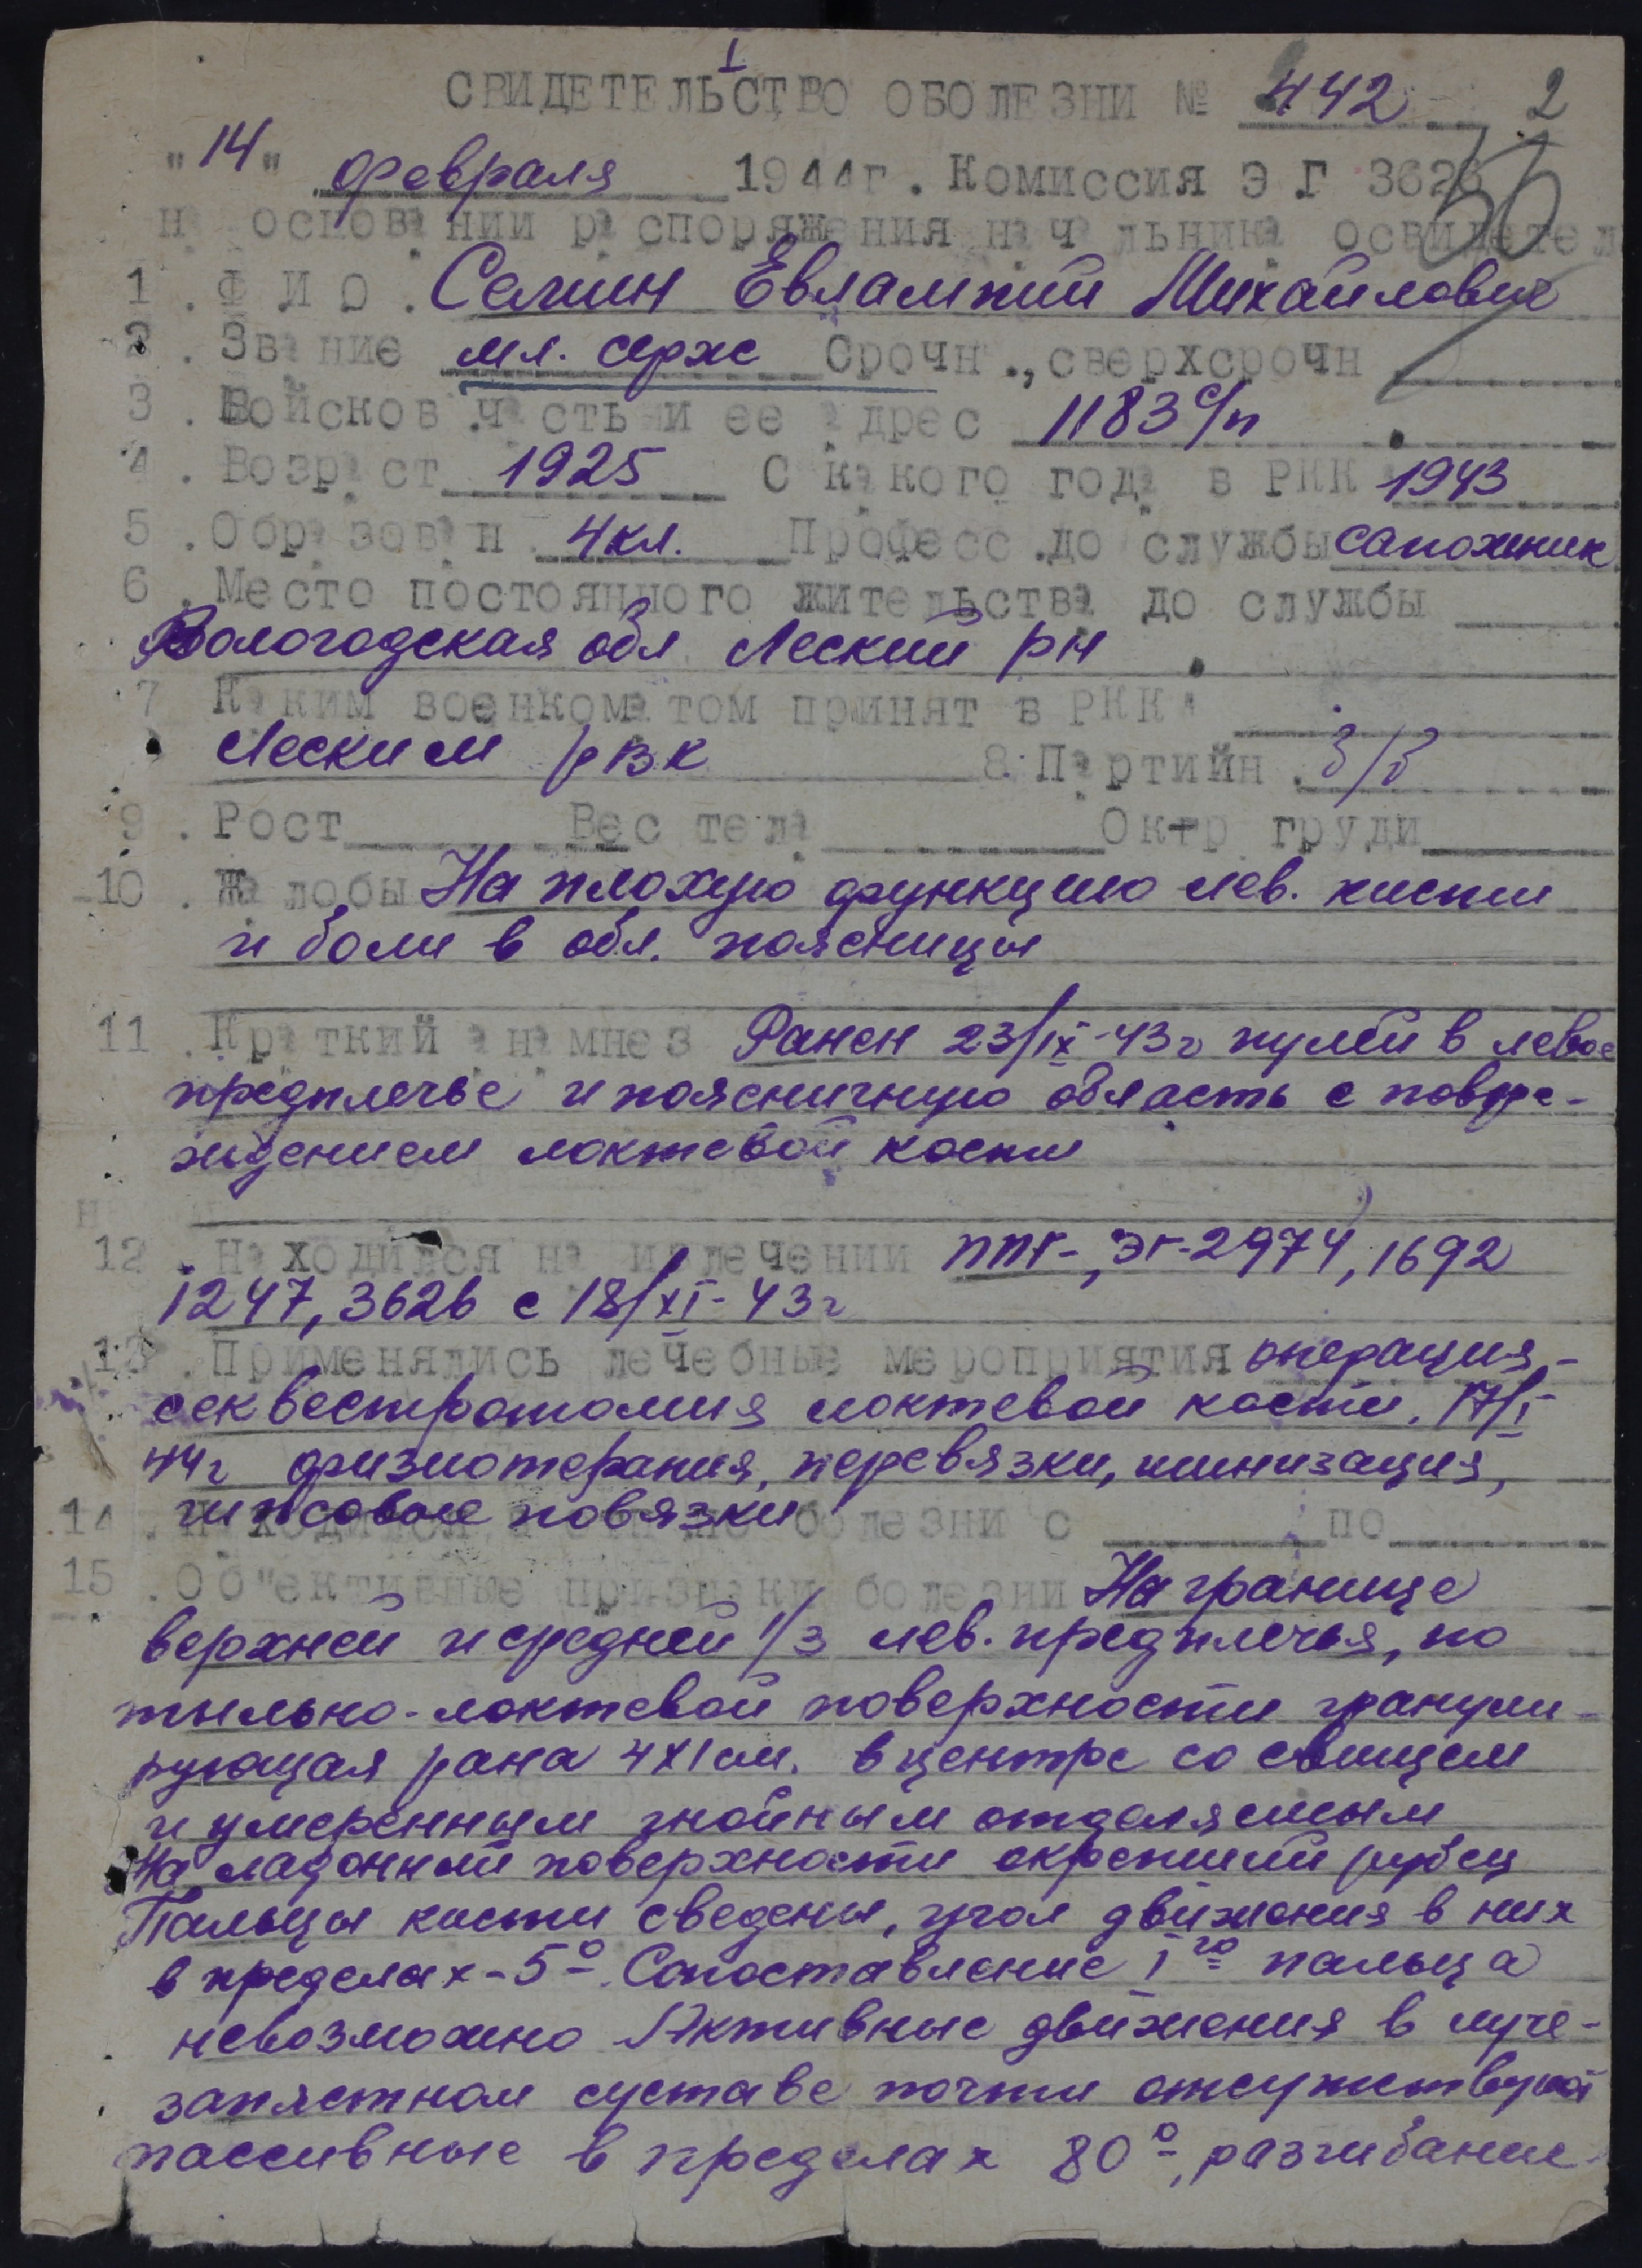 I
СВИДЕТЕЛЬСТВО ОБОЛЕЗНИ № 442 2
"14" февраля 1944г. Комиссия Э.Г 3626
на основании распоряжения начальника освидетел
1. Ф И О. Семин Евлампий Михайлович
2. Звание мл. серж Срочн., сверхсрочн
3. Войсков. часть и ее адрес 1183 с/п
4. Возраст 1925 С какого года в РКК 1943
5. Образован 4 кл. Професс. до службы сапожник
6. Место постоянного жительства до службы
Вологодская обл Леский рн
7 Каким военкоматом принят в РККА
Леским рвк 8. Партийн. б/п
9. Рост Вес тела Окр груди
10. Жалобы На плохую функцию лев. кисти
и боли в обл. поясницы
11. Краткий анамнез Ранен 23/IX-43г пулей в левое
предплечье и поясничную область с повре-
ждением локтевой кости
12. Находился на излечении ППГ-, ЭГ-2974, 1692
1247, 3626 с 18/XI-43г
13. Применялись лечебные мероприятия операция-
секвестротомия локтевой кости. 17/I
44г физиотерапия, перевязки, шинизация,
гипсовые повязки
14. болезни с по
15. Об"ективные признаки болезни На границе
верхней и средней 1/3 лев. предплечья, по
тыльно-локтевой поверхности гранули-
рующая рана 4х1 см. в центре со свищем
и умеренным гнойным отделяемым
На ладонной поверхности окрепший рубец
Пальцы кисти сведены, угол движения в них
в пределах - 5°. Сопоставление I го пальца
невозможно Активные движения в луче-
запястном суставе почти отсутствуют
пассивные в пределах 80°, разгибание